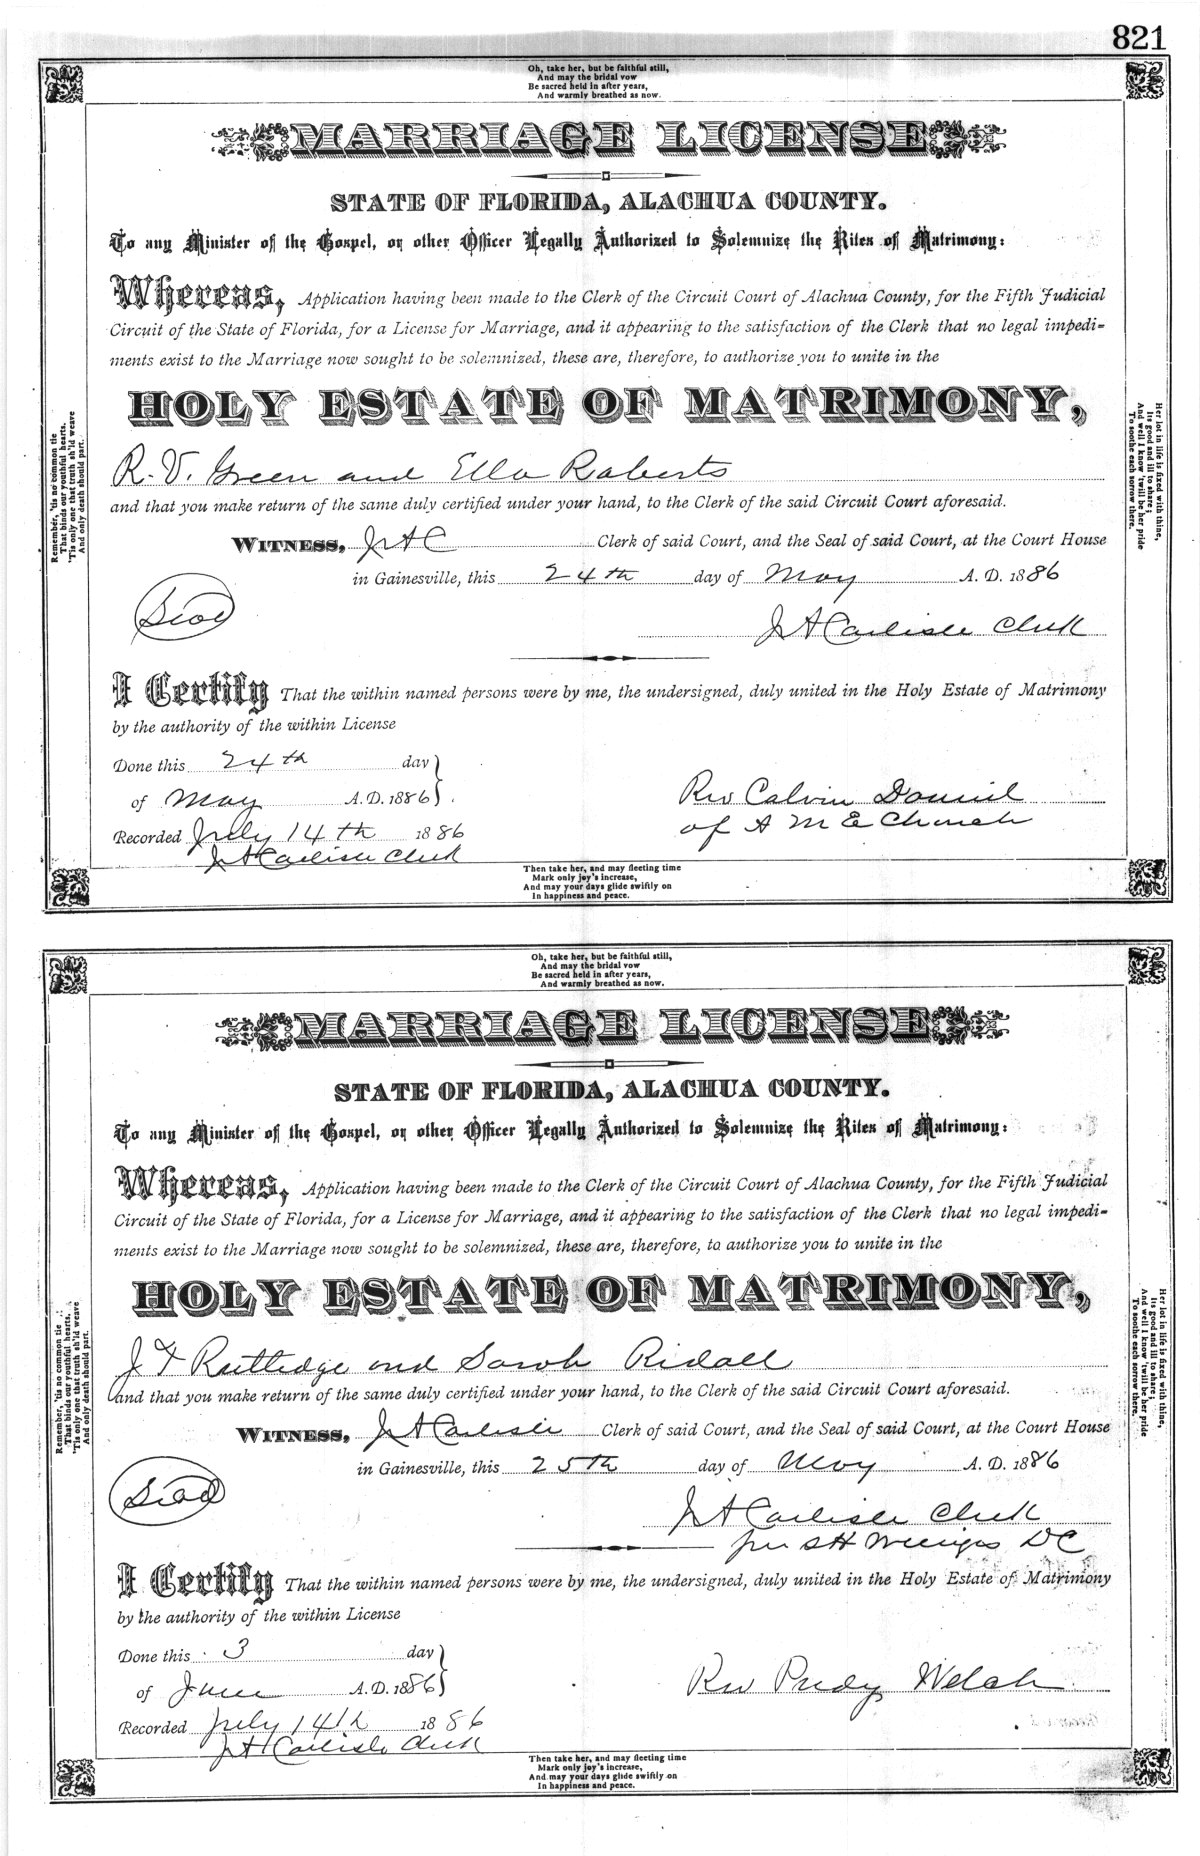 821
Oh, take her, but be faithful still,
And may the bridal vow
Be sacred held in after years,
And warmly breathed as now.
MARRIAGE LICENSE
STATE OF FLORIDA, ALACHUA COUNTY.
To any Minister of the Gospel, or other Officer Legally Authorized to Solemnize the Rites of Matrimony:
Whereas, Application having been made to the Clerk of the Circuit Court of Alachua County, for the Fifth Judicial
Circuit of the State of Florida, for a License for Marriage, and it appearing to the satisfaction of the Clerk that no legal impedi-
ments exist to the Marriage now sought to be solemnized, these are, therefore, to authorize you to unite in the
HOLY ESTATE OF MATRIMONY,
R. V. Green and Ella Roberts
and that you make return of the same duly certified under your hand, to the Clerk of the said Circuit Court aforesaid.
WITNESS, J A C Clerk of said Court, and the Seal of said Court, at the Court House
in Gainesville, this 24th day of May A. D. 1886
Seal
J A Carlisle Clerk
I Certify That the within named persons were by me, the undersigned, duly united in the Holy Estate of Matrimony
by the authority of the within License
Done this 24th day
of May A. D. 1886
Rev Calvin Daniel
of A M E Church
Recorded July 14th 1886
J A Carlisle Clerk
Remember, 'tis no common tie
That binds our youthful hearts,
'Tis only one that truth sh'ld weave
And only death should part.
Her lot in life is fixed with thine,
Its good and ill to share;
And well I know 'twill be her pride
To soothe each sorrow there.
Then take her, and may fleeting time
Mark only joy's increase,
And may your days glide swiftly on
In happiness and peace.
Oh, take her, but be faithful still,
And may the bridal vow
Be sacred held in after years,
And warmly breathed as now.
MARRIAGE LICENSE
STATE OF FLORIDA, ALACHUA COUNTY.
To any Minister of the Gospel, or other Officer Legally Authorized to Solemnize the Rites of Matrimony:
Whereas, Application having been made to the Clerk of the Circuit Court of Alachua County, for the Fifth Judicial
Circuit of the State of Florida, for a License for Marriage, and it appearing to the satisfaction of the Clerk that no legal impedi-
ments exist to the Marriage now sought to be solemnized, these are, therefore, to authorize you to unite in the
HOLY ESTATE OF MATRIMONY,
J F Rutledge and Sarah Ridall
and that you make return of the same duly certified under your hand, to the Clerk of the said Circuit Court aforesaid.
WITNESS, J A Carlisle Clerk of said Court, and the Seal of said Court, at the Court House
in Gainesville, this 25th day of May A. D. 1886
Seal
J A Carlisle Clerk
per S H DC
I Certify That the within named persons were by me, the undersigned, duly united in the Holy Estate of Matrimony
by the authority of the within License
Done this 3 day
of June A. D. 1886
Rev Welch
Recorded July 14th 1886
J A Carlisle Clerk
Remember, 'tis no common tie
That binds our youthful hearts,
'Tis only one that truth sh'ld weave
And only death should part.
Her lot in life is fixed with thine,
Its good and ill to share;
And well I know 'twill be her pride
To soothe each sorrow there.
Then take her, and may fleeting time
Mark only joy's increase,
And may your days glide swiftly on
In happiness and peace.